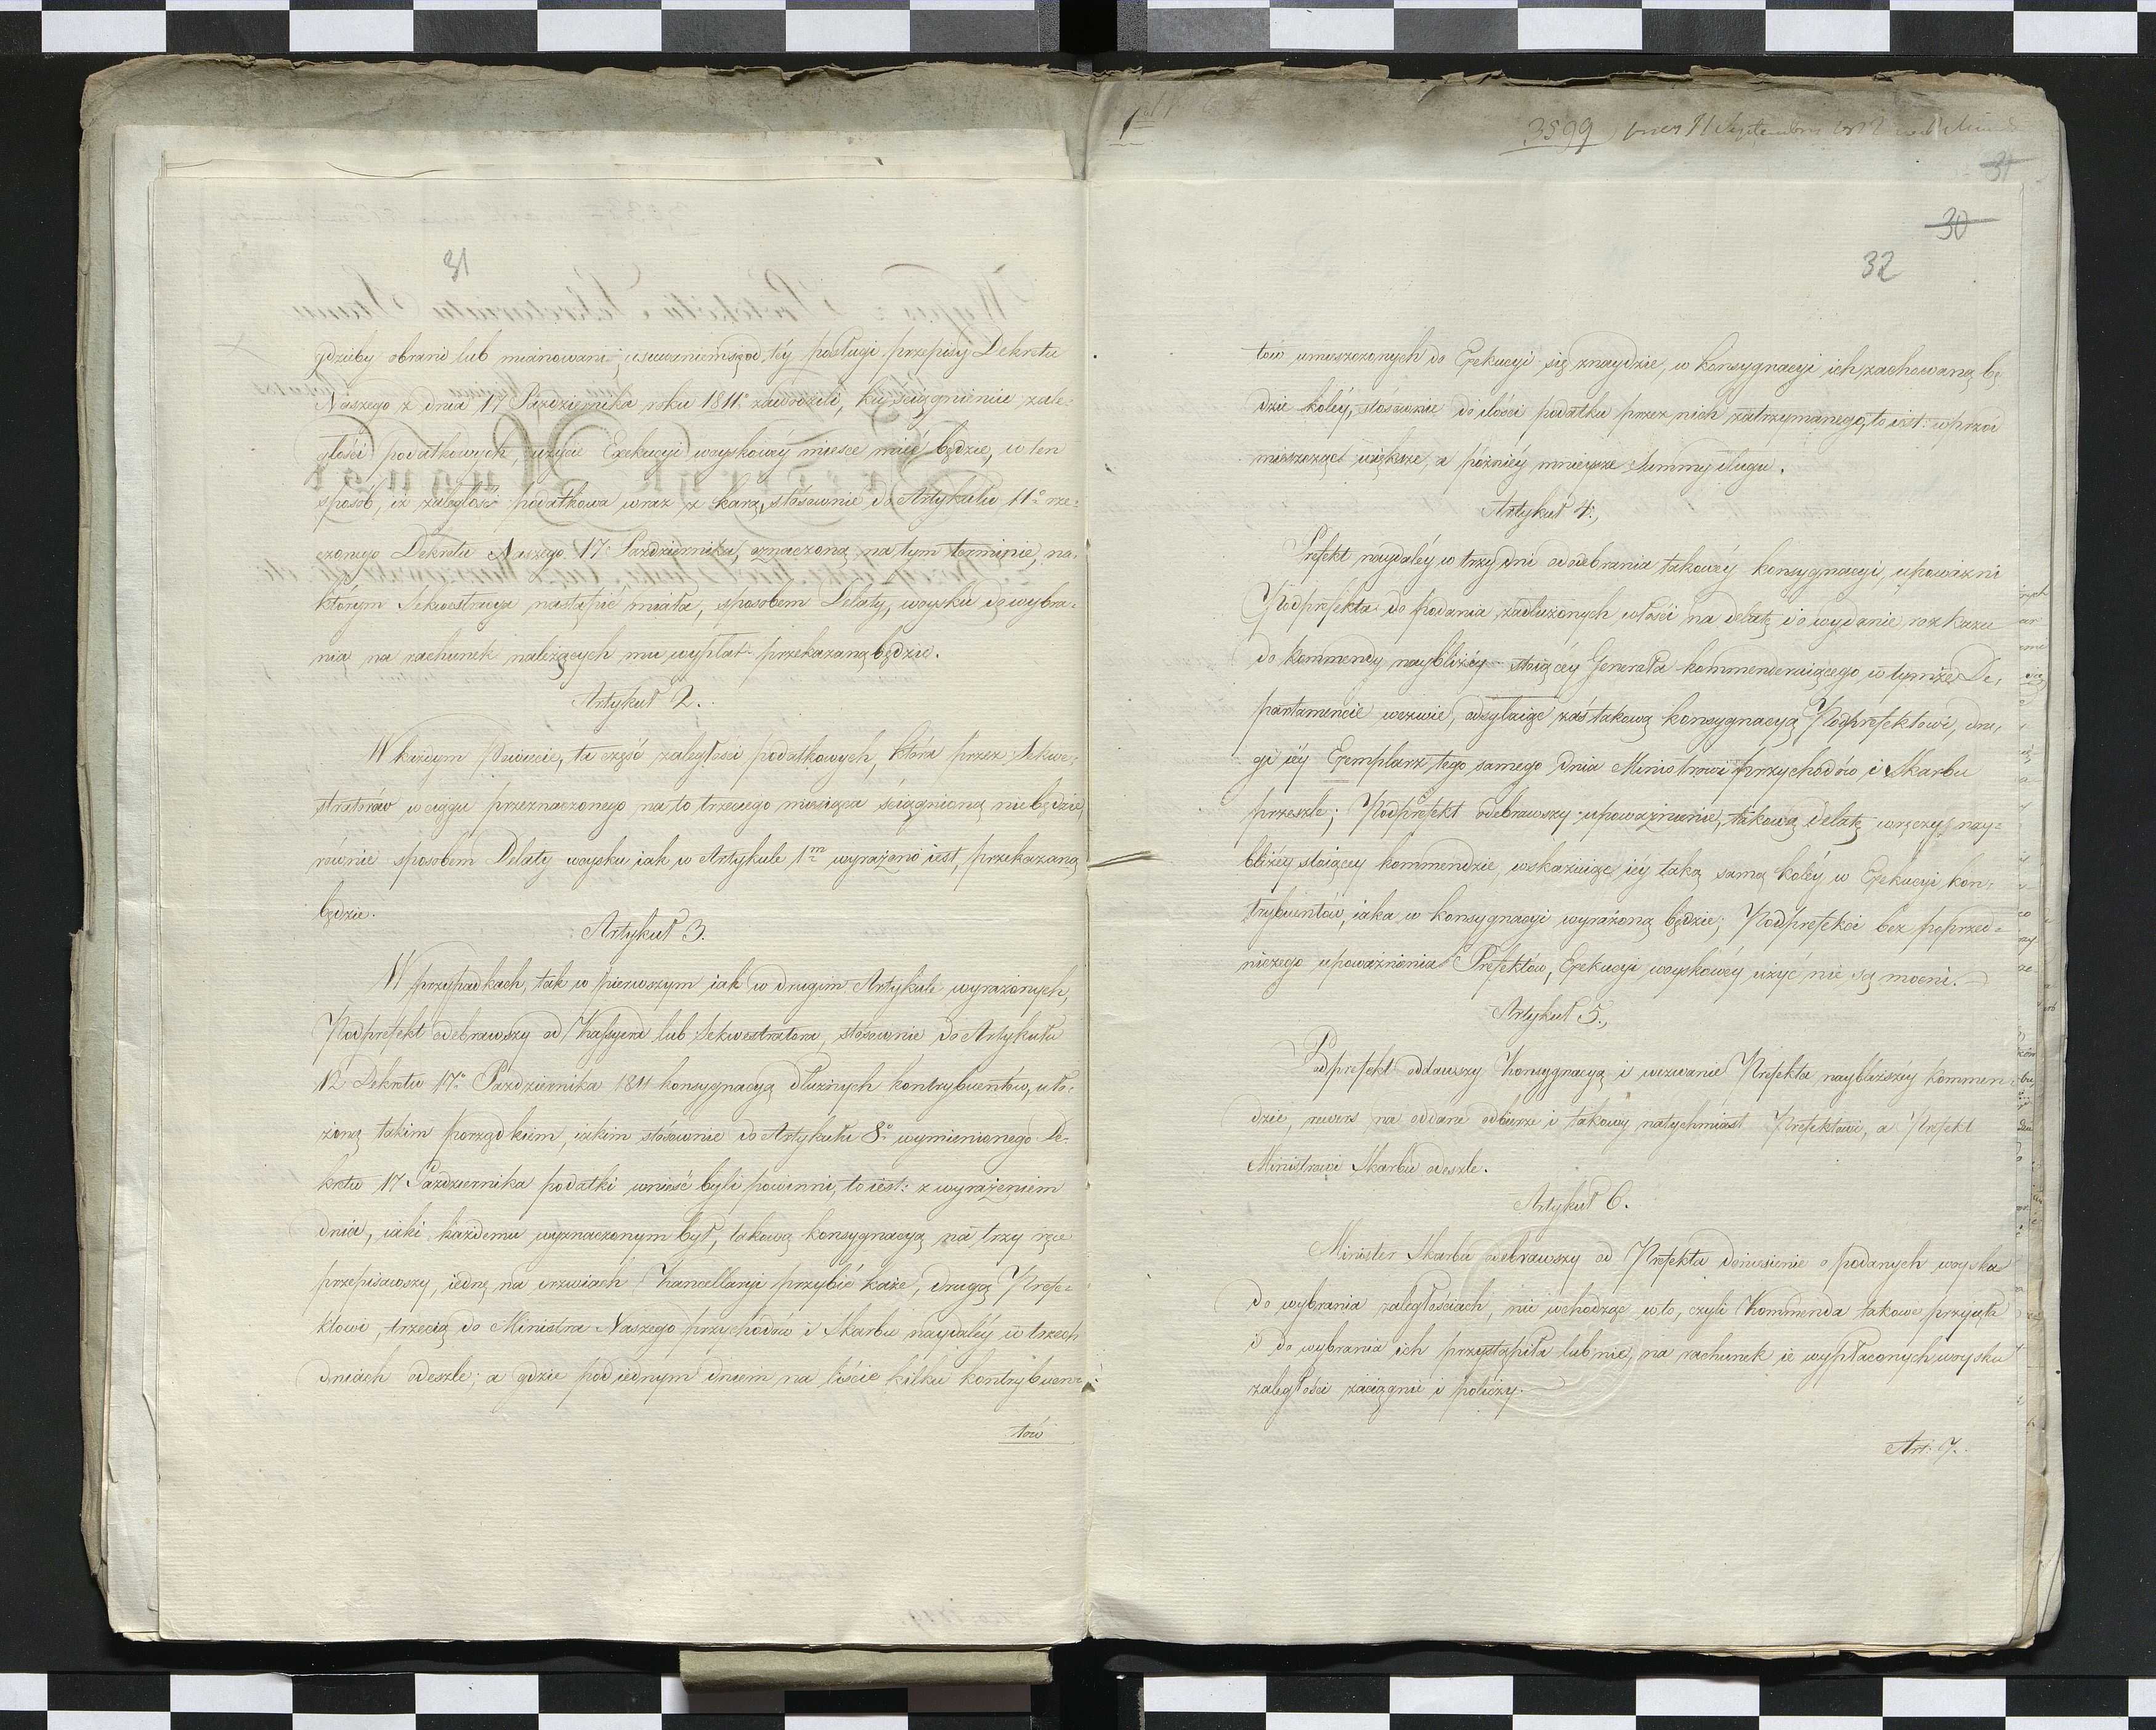 31
gdzieby obrani lub mianowani, usuwaniem się od téy posługi, przepisy Dekretu
Naszego z dnia 17 Pazdziernika roku 1811º zawodzili, ku ściągnieniu zale-
głości podatkowych, użycie Exekucyi woyskowéy mieysce mieć będzie, w ten
sposób, iż zaległość podatkowa wraz z karą, stósownie do Artykułu 11º rze-
czonego Dekretu Naszego 17 Pazdziernika, oznaczoną na tym terminie, na
którym Sekwestracya nastąpić miała, sposobem Delaty, woysku do wybra-
nia na rachunek należących mu wypłat przekazaną będzie.
Artykuł 2.
W każdym Powiecie, ta część zaległości podatkowych, która przez Sekwe-
stratorów w ciągu przeznaczonego na to trzeciego miesiąca ściągnioną nie będzie,
równie sposobem Delaty woysku iak w Artykule 1m wyrażono iest, przekazaną
będzie.
Artykuł 3.
W przypadkach, tak w pierwszym iak w drugim Artykule wyrażonych,
Podprefekt odebrawszy od Kassyera lub Sekwestratora, stósownie do Artykułu
12 Dekretu 17º Pazdziernika 1811 konsygnacyą dłużnych kontrybuentów, uło-
żoną takim porządkiem, iakim stósownie do Artykułu 8º wymienionego De-
kretu 17 Pazdziernika podatki wnieść byli powinni, to iest: z wyrażeniem
dnia, iaki każdemu wyznaczonym był, takową konsygnacyą na trzy ręce
przepisawszy, iednę na drzwiach Kancellaryi przybić każe, drugą Prefe-
ktowi, trzecią do Ministra Naszego przychodów i Skarbu naydaléy w trzech
dniach odeszle; a gdzie pod iednym dniem na liście kilku kontrybuen-
tów
1
3599
31
30
32
tów umieszczonych do Exekucyi się znaydzie, w konsygnacyi ich zachowaną bę
dzie koléy, stósownie do ilości podatku przez nich zatrzymanego, to iest: wprzód
mieszcząc większe, a późniéy mnieysze Summy długu.
Artykuł 4.
Prefekt naydaléy w trzy dni od odebrania takowéy konsygnacyi, upoważni
Podprefekta do podania zadłużonych włości na delatę i o wydanie rozkazu
do kommendy naybliżéy stoiącéy Generała kommenderuiącego w tymże De-
partamencie wezwie, odsyłaiąc zaś takową konsygnacyą Podprefektowi, dru-
gi iéy Exemplarz tego samego dnia Ministrowi przychodów i Skarbu
przeszle; Podprefekt odebrawszy upoważnienie, takową Delatę wręczy nay-
bliżéy stoiącey kommendzie, wskazuiąc iéy taką samą koléy w Exekucyi kon-
trybuentów, iaka w konsygnacyi wyrażoną będzie; Podprefekci bez poprzed-
niczego upoważnienia Prefektów, Exekucyi woyskowéy użyć nie są mocni.
Artykuł 5.
Podprefekt oddawszy Konsygnacyą i wezwanie Prefekta naybliższéy kommen-
dzie, rewers na oddane odbierze i takowy natychmiast Prefektowi, a Prefekt
Ministrowi Skarbu odeszle.
Artykuł 6.
Minister Skarbu odebrawszy od Prefekta doniesienie o podanych woysku
do wybrania zaległościach, nie wchodząc w to, czyli Kommenda takowe przyięła
i do wybrania ich przystąpiła lub nie, na rachunek ie wypłaconych woysku
zaległości zaciągnie i policzy.
Art: 7.